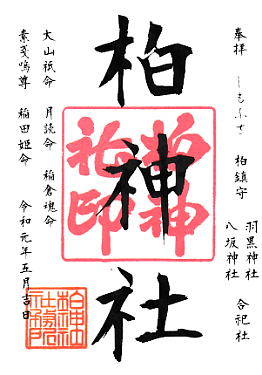 奉拝 しもふさ 柏鎮守
羽黒神社
八坂神社
合祀社
柏神社
大山祇命 月読命 稲倉魂命
素戔嗚尊 稲田姫命 令和元年五月吉日
柏神社印
柏神社社務所印